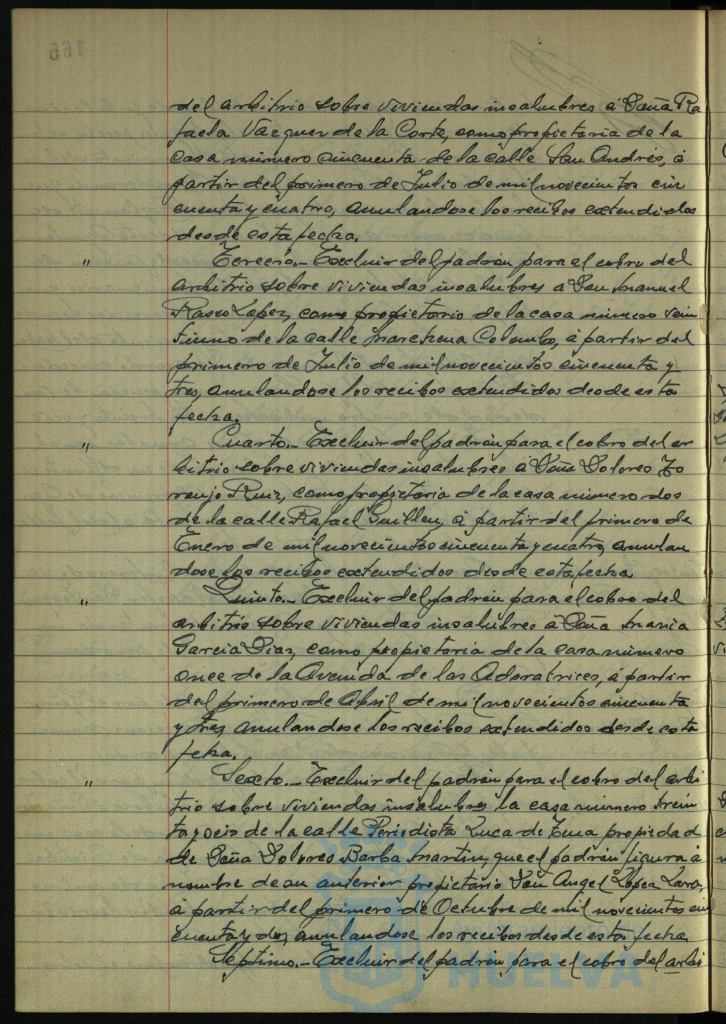 del arbitrio sobre viviendas insalubres á Doña Ra
faela Vázquez de la Corte, como propietaria de la
casa número cincuenta de la calle San Andrés, á
partir del primero de Julio de mil novecientos cin
cuenta y cuatro, anulandose los recibos extendidos
desde esta fecha.
" Tercero.- Excluir del padrón para el cobro del
arbitrio sobre viviendas insalubres a Don Manuel
Rasco Lopez, como propietario de la casa número vein
tiuno de la calle Marchena Colombo, á partir del
primero de Julio de mil novecientos cincuenta y
tres, anulandose los recibos extendidos desde esta
fecha.
" Cuarto.- Excluir del padrón para el cobro del ar
bitrio sobre viviendas insalubres á Doña Dolores To
ronjo Ruiz, como propietaria de la casa número dos
de la calle Rafael Guillen, á partir del primero de
Enero de mil novecientos cincuenta y cuatro, anulan
dose los recibos extendidos desde esta fecha
" Quinto.- Excluir del padrón para el cobro del
arbitrio sobre viviendas insalubres á Doña Maria
Garcia Diaz, como propietaria de la casa número
once de la Avenida de las Adoratrices, á partir
del primero de Abril de mil novecientos cincuenta
y tres, anulandose los recibos extendidos desde esta
fecha.
" Sexto.- Excluir del padrón para el cobro del arbi
trio sobre viviendas insalubres la casa número trein
ta y seis de la calle Periodista Luca de Tena propiedad
de Doña Dolores Barba Martin, que el padrón figura á
nombre de su anterior propietario Don Angel López
á partir del primero de Octubre de mil novecientos cin
cuenta y dos, anulandose los recibos desde esta fecha
Septimo.- Excluir del padrón para el cobro del arbi
HUELVA